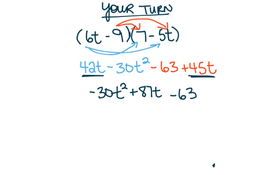 YOUR TURN
(6t - 9)(7 - 5t)
42t - 30t² - 63 + 45t
-30t² + 87t - 63